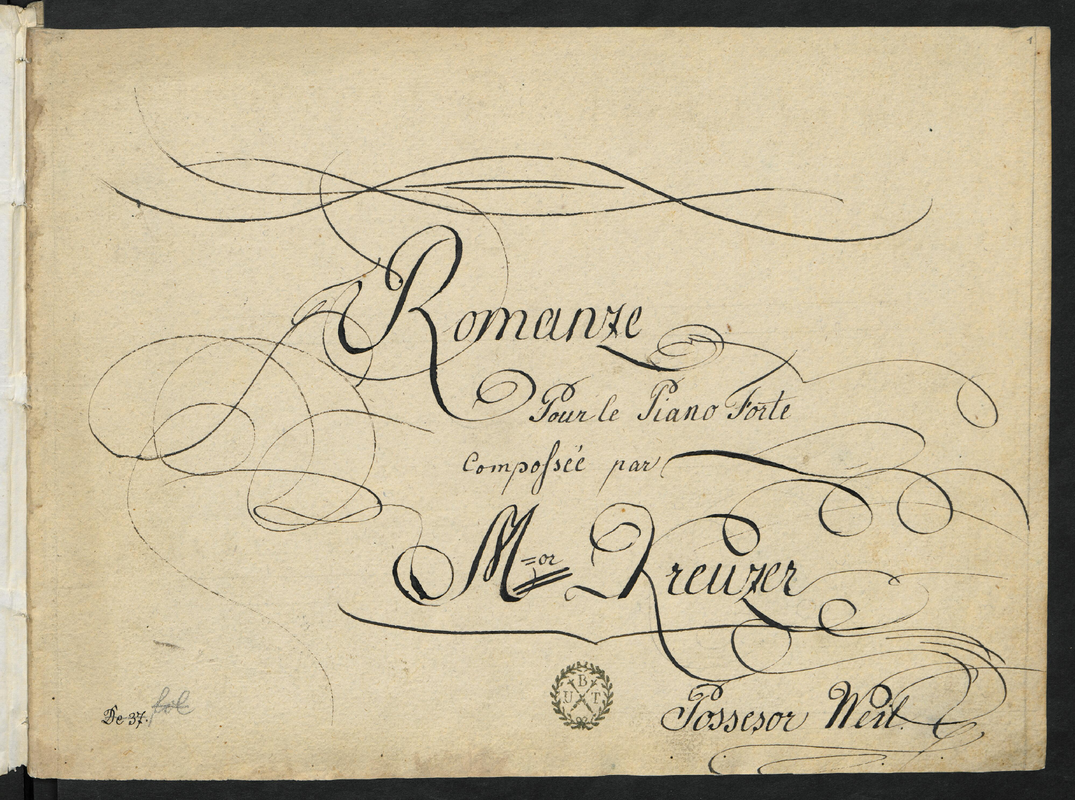 1
Romanze
Pour le Piano Forte
Compoſsée par
M=or Kreuzer
UBT
Possesor Weil
De 37. fol